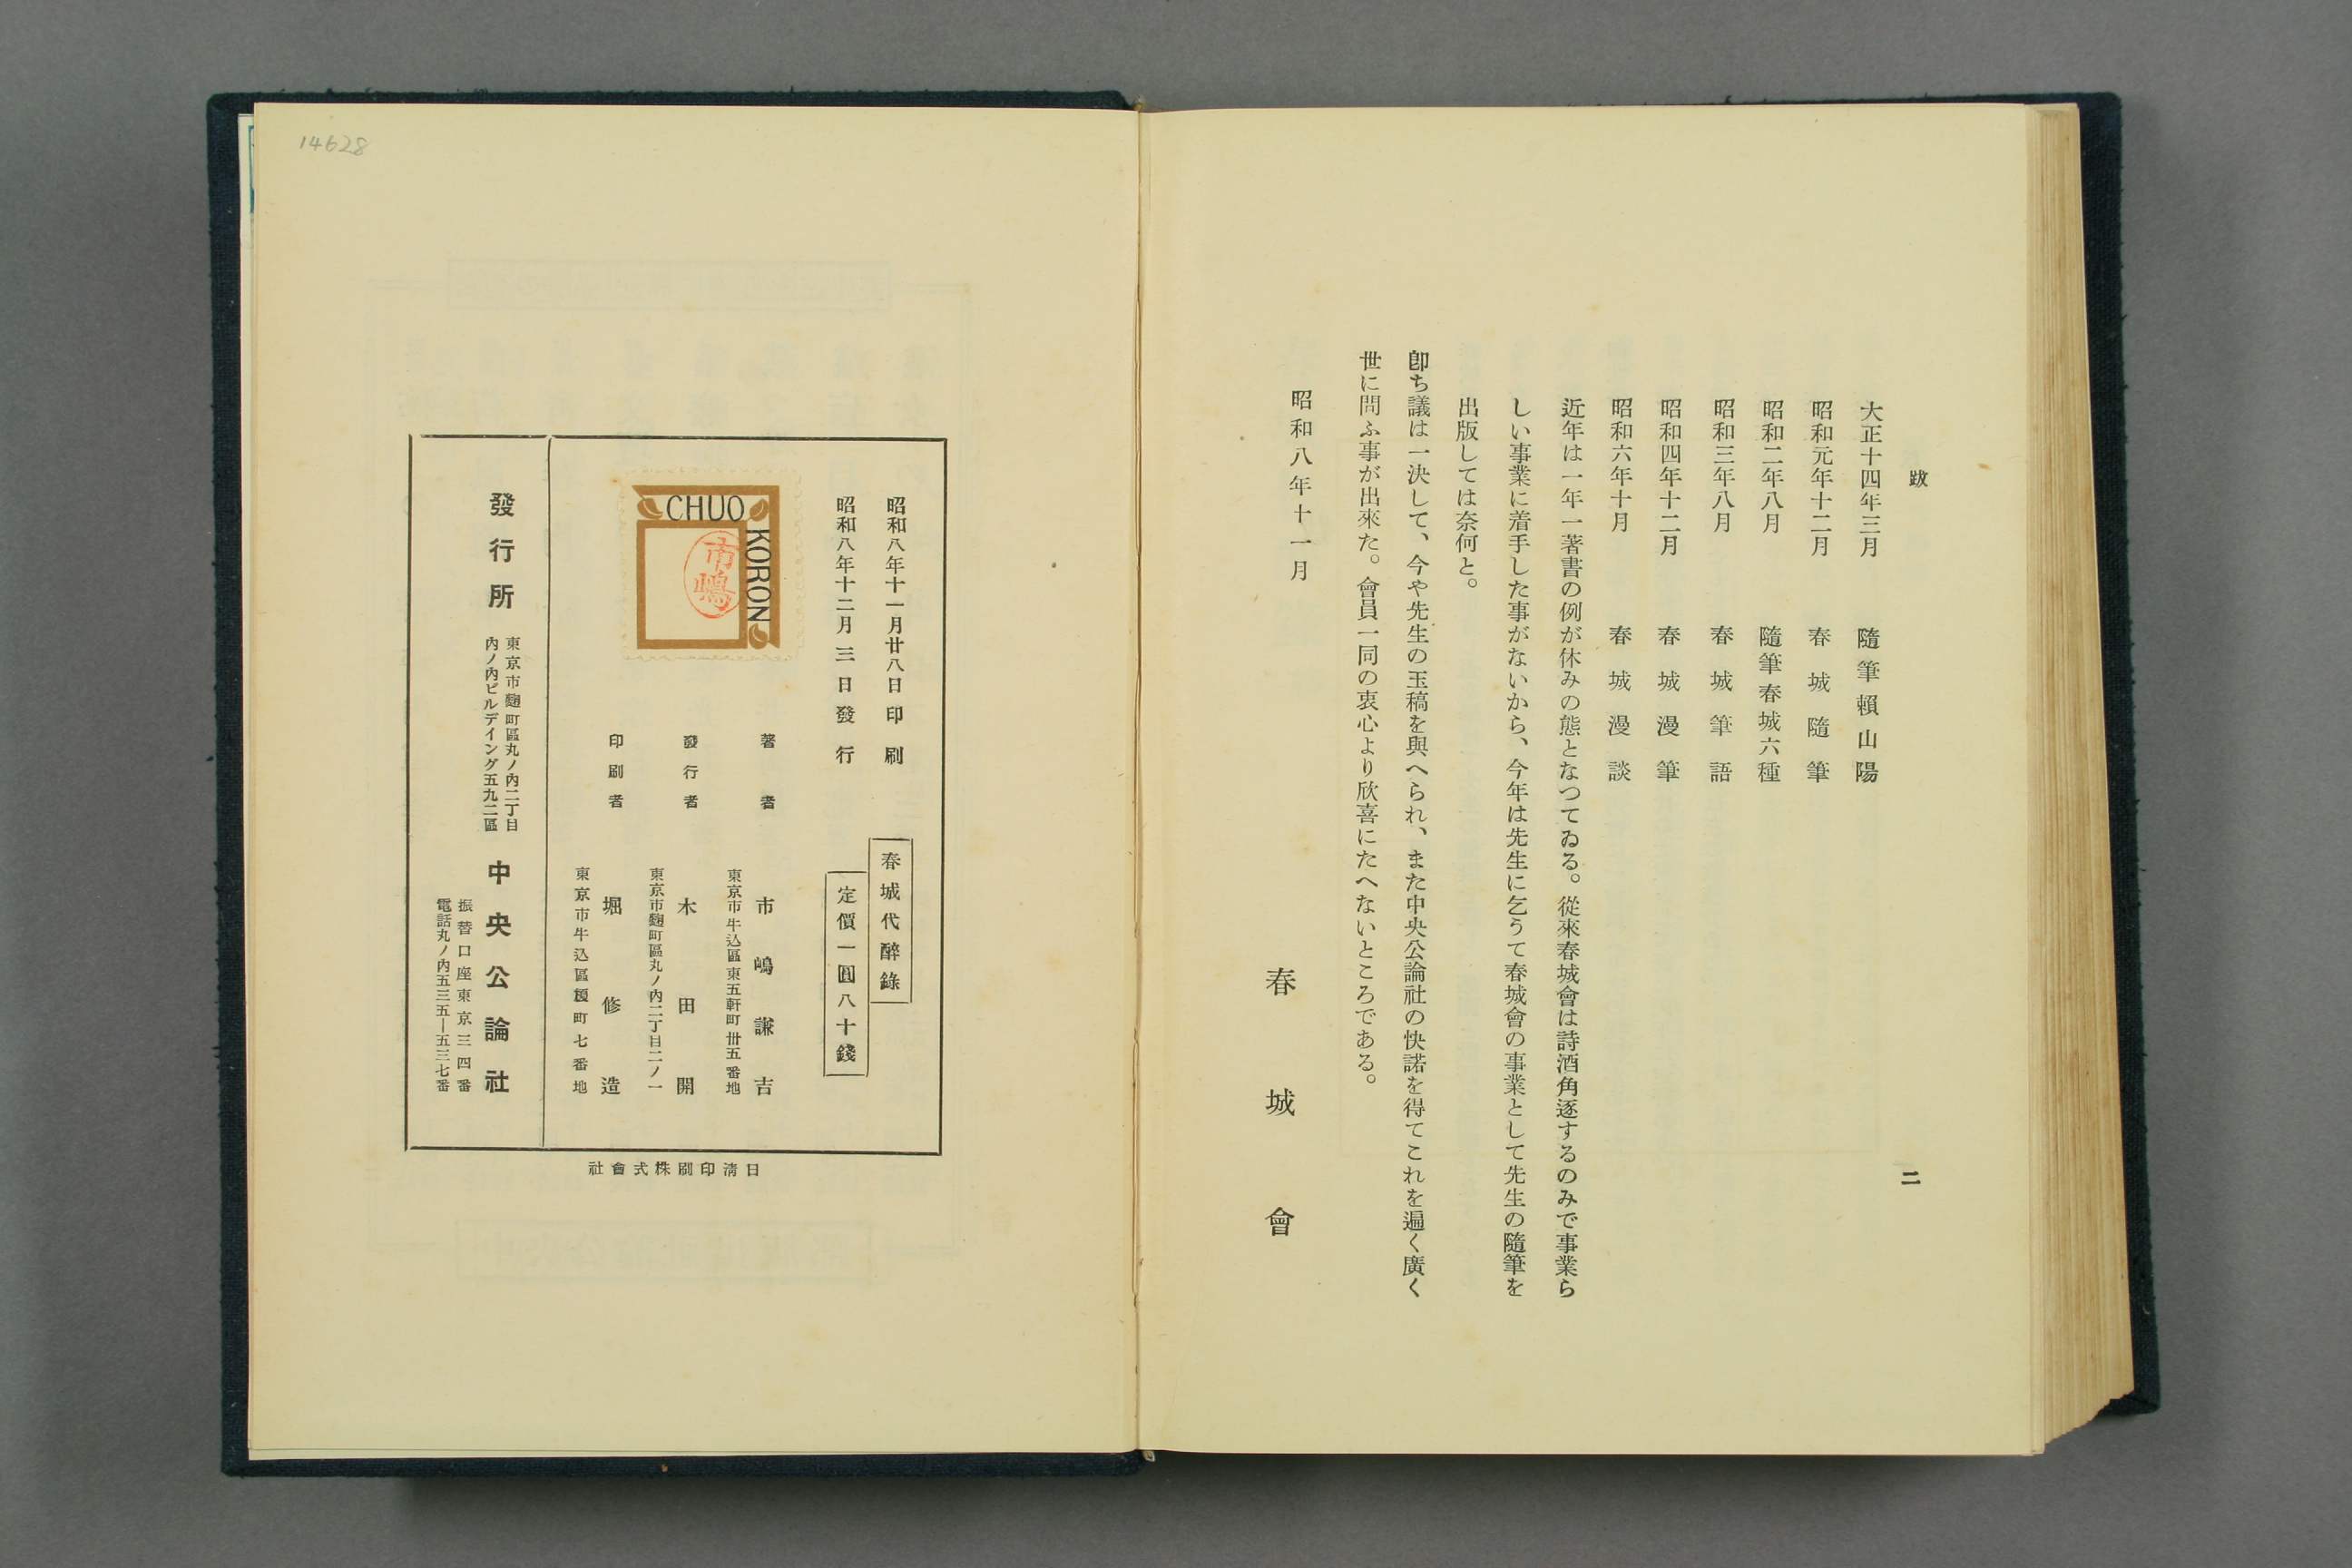 跋
二
大正十四年三月 隨筆賴山陽
昭和元年十二月 春城隨筆
昭和二年八月 隨筆春城六種
昭和三年八月 春城筆語
昭和四年十二月 春城漫筆
昭和六年十月 春城漫談
近年は一年一著書の例が休みの態となつてゐる。從來春城會は詩酒角逐するのみで事業ら
しい事業に着手した事がないから、今年は先生に乞うて春城會の事業として先生の隨筆を
出版しては奈何と。
卽ち議は一決して、今や先生の玉稿を與へられ、また中央公論社の快諾を得てこれを遍く廣く
世に問ふ事が出來た。會員一同の衷心より欣喜にたへないところである。
昭和八年十一月
春城會
14628
昭和八年十一月廿八日印刷
昭和八年十二月三日發行
春城代醉錄
定價一圓八十錢
CHUO
KORON
市嶋
著者 市嶋謙吉
東京市牛込區東五軒町卅五番地
發行者 木田開
東京市麴町區丸ノ內二丁目二ノ一
印刷者 堀修造
東京市牛込區榎町七番地
發行所
東京市麴町區丸ノ內二丁目
內ノ內ビルデイング五九二區
中央公論社
振替口座東京三四番
電話丸ノ內五三五—五三七番
日淸印刷株式會社